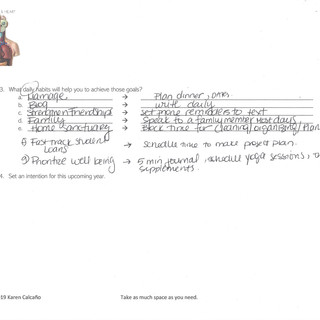 3. What daily habits will help you to achieve those goals?
a. Damage, → Plan dinner, DATES.
b. Blog → write daily
c. Strengthen Friendships → set phone reminders to text
d. Family → Speak to a family member most days
e. Home Sanctuary → Block time for cleaning/organizing/Plan
f) Fast track student loans → schedule time to make project plan.
g) Prioritize well being → 5 min journal, schedule yoga sessions,
supplements.
4. Set an intention for this upcoming year.
19 Karen Calcaño Take as much space as you need.